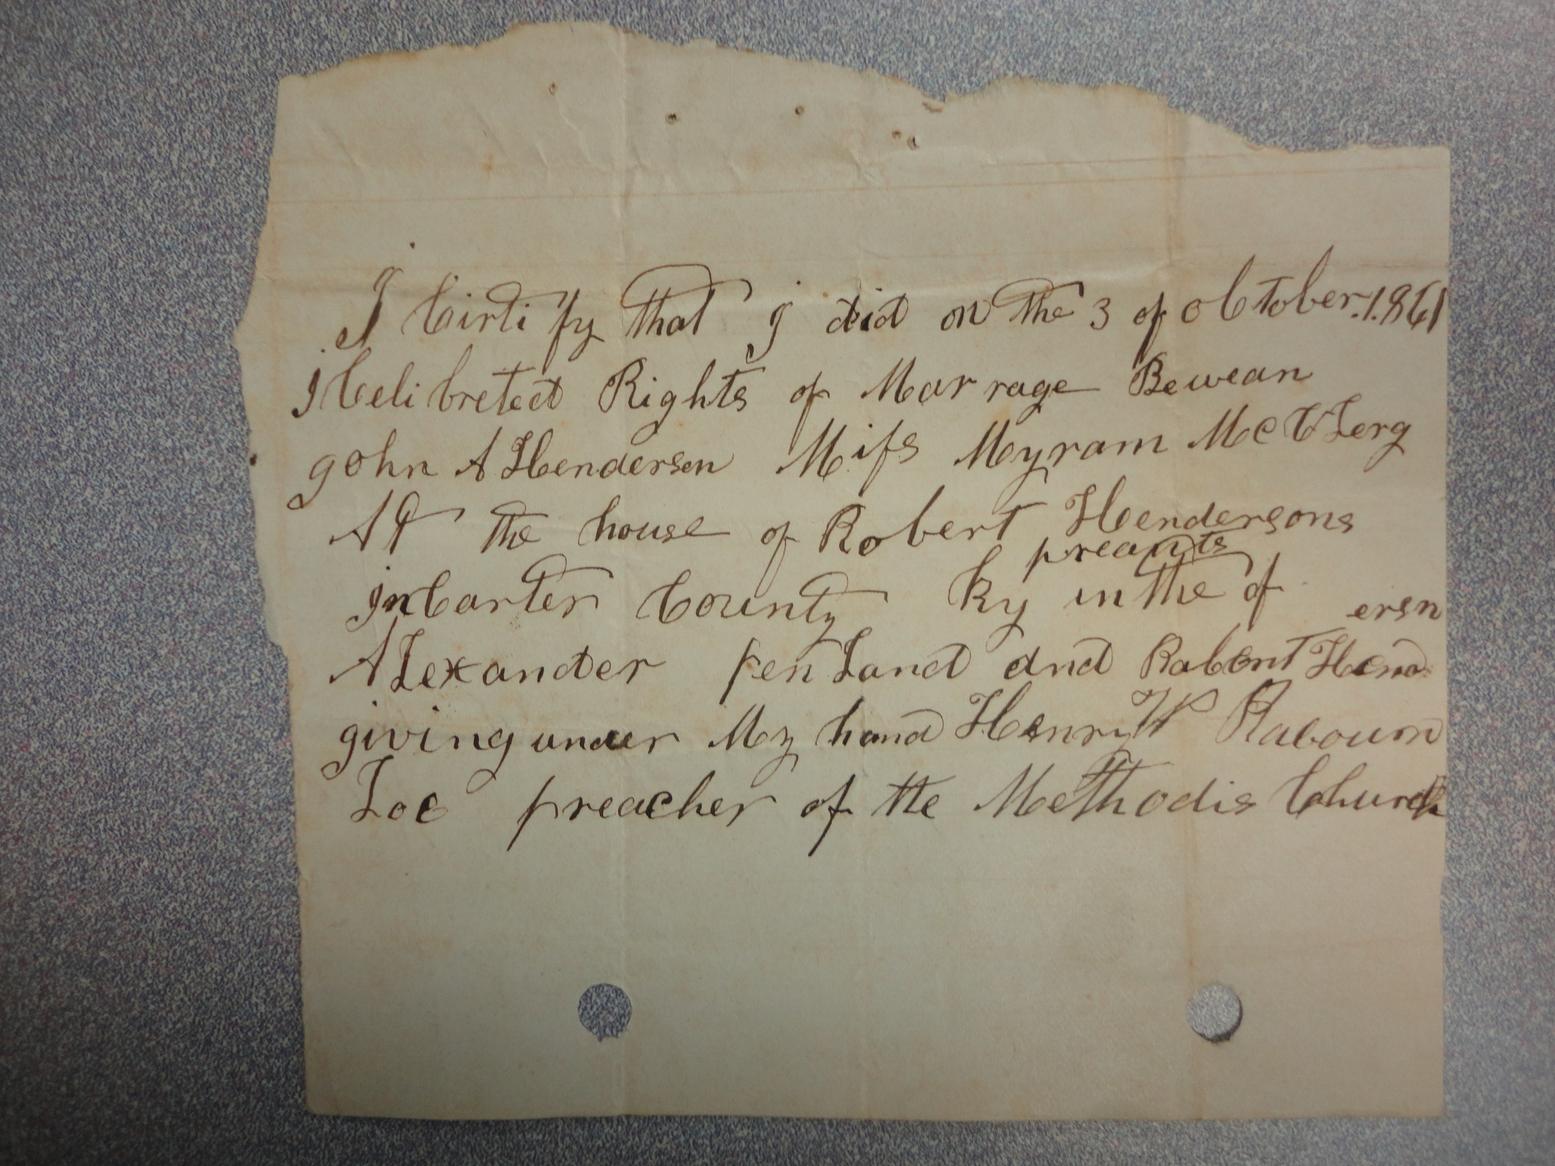 I Cirtify that I did on the 3 of October. 1861
I Celibreted Rights of Marrage Bewean
John A Hendersen Miss Myram McClerg
At the house of Robert Hendersons
preants
In Carter County Ky in the of
ersn
Alexander penland and Rabert Hend
giving under My hand Henry W Rabourn
Loc preacher of the Methodis Church